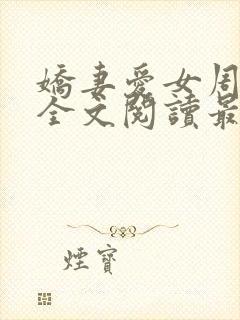 嬌妻愛女周
全文閱讀最
煙寶